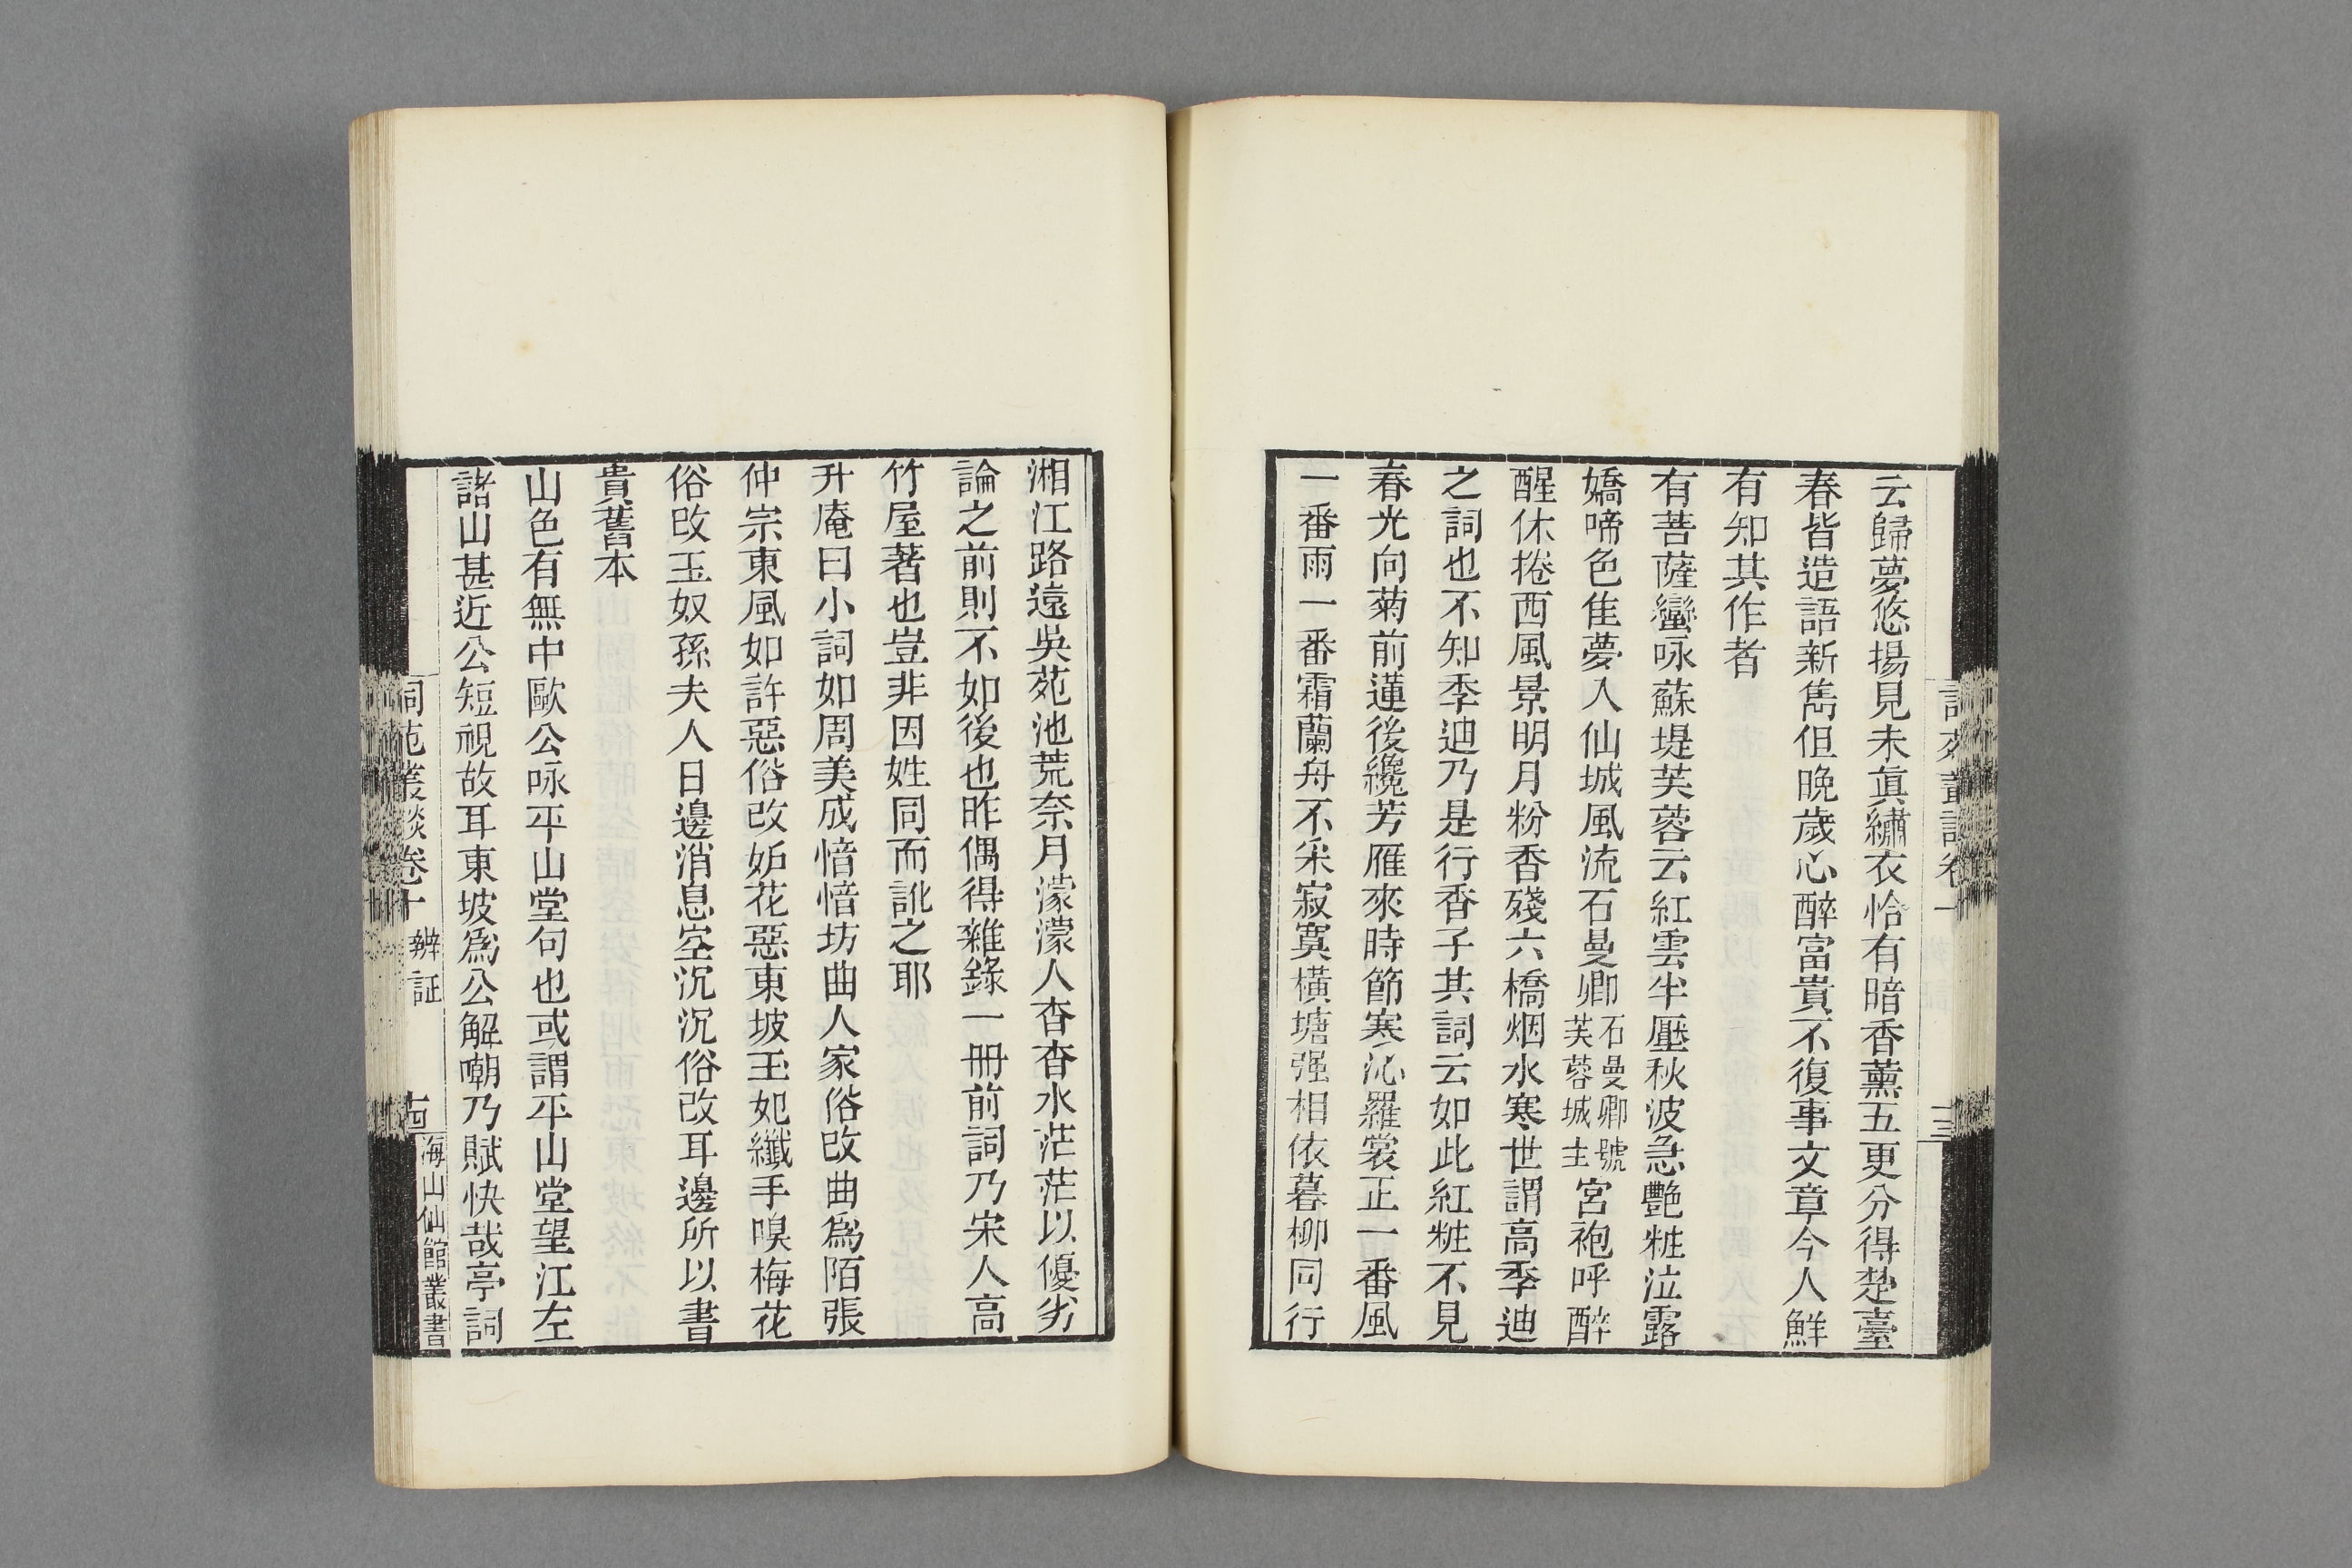 云歸夢悠揚見未眞繡衣恰有暗香薰五更分得楚臺
春皆造語新雋但晚歲心醉富貴不復事文章今人鮮
有知其作者
有菩薩蠻咏蘇堤芙蓉云紅雲半壓秋波急艷粧泣露
嬌啼色佳夢入仙城風流石曼卿石曼卿號芙蓉城主宮袍呼醉
醒休捲西風景明月粉香殘六橋烟水寒世謂高季迪
之詞也不知季迪乃是行香子其詞云如此紅粧不見
春光向菊前蓮後纔芳雁來時節寒沁羅裳正一番風
一番雨一番霜蘭舟不采寂寞橫塘强相依暮柳同行
湘江路遠吳苑池荒奈月濛濛人杳杳水茫茫以優劣
論之前則不如後也昨偶得雜錄一冊前詞乃宋人高
竹屋著也豈非因姓同而訛之耶
升庵曰小詞如周美成愔愔坊曲人家俗改曲爲陌張
仲宗東風如許惡俗改妒花惡東坡玉妃纖手嗅梅花
俗改玉奴孫夫人日邊消息空沉沉俗改耳邊所以書
貴舊本
山色有無中歐公咏平山堂句也或謂平山堂望江左
諸山甚近公短視故耳東坡爲公解嘲乃賦快哉亭詞
詞苑叢談卷十 辨証 古 海山仙館叢書